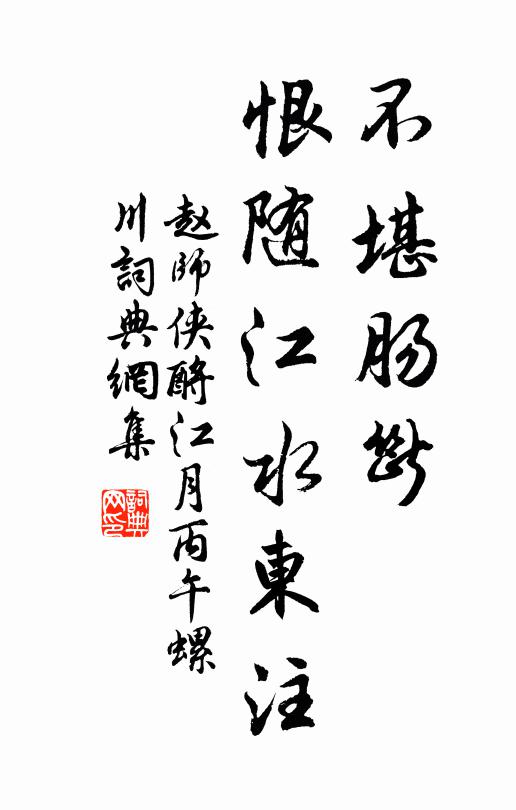 不堪肠断
恨随江水東注
赵师侠酹江月丙午螺
川詞典網集
詞典
网印